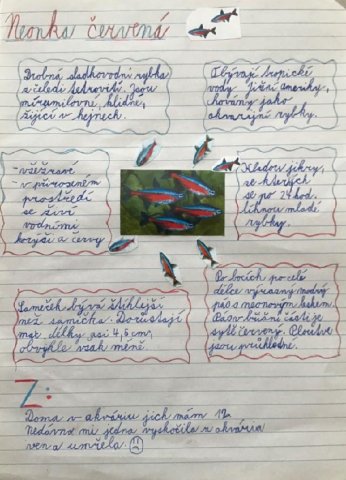 Neonka červená
Drobná sladkovodní rybka
z čeledi tetrovití. Jsou
mírumilovné, klidné,
žijící v hejnech.
Obývají tropické
vody Jižní Ameriky,
chovány jako
akvarijní rybky.
-všežravé
v přirozeném
prostředí
se živí
vodními
korýši a červy
Kladou jikry,
ze kterých
se po 24 hod.
líhnou mladé
rybky.
Sameček bývá štíhlejší
než samička. Dorůstají
max. délky asi 4,5 cm,
obvykle však méně.
Po bocích po celé
délce výrazný modrý
pás s neonovým leskem.
Pás v břišní části je
sytě červený. Ploutve
jsou průhledné.
Z:
Doma v akváriu jich mám 12.
Nedávno mi jedna vyskočila z akvária
ven a umřela.